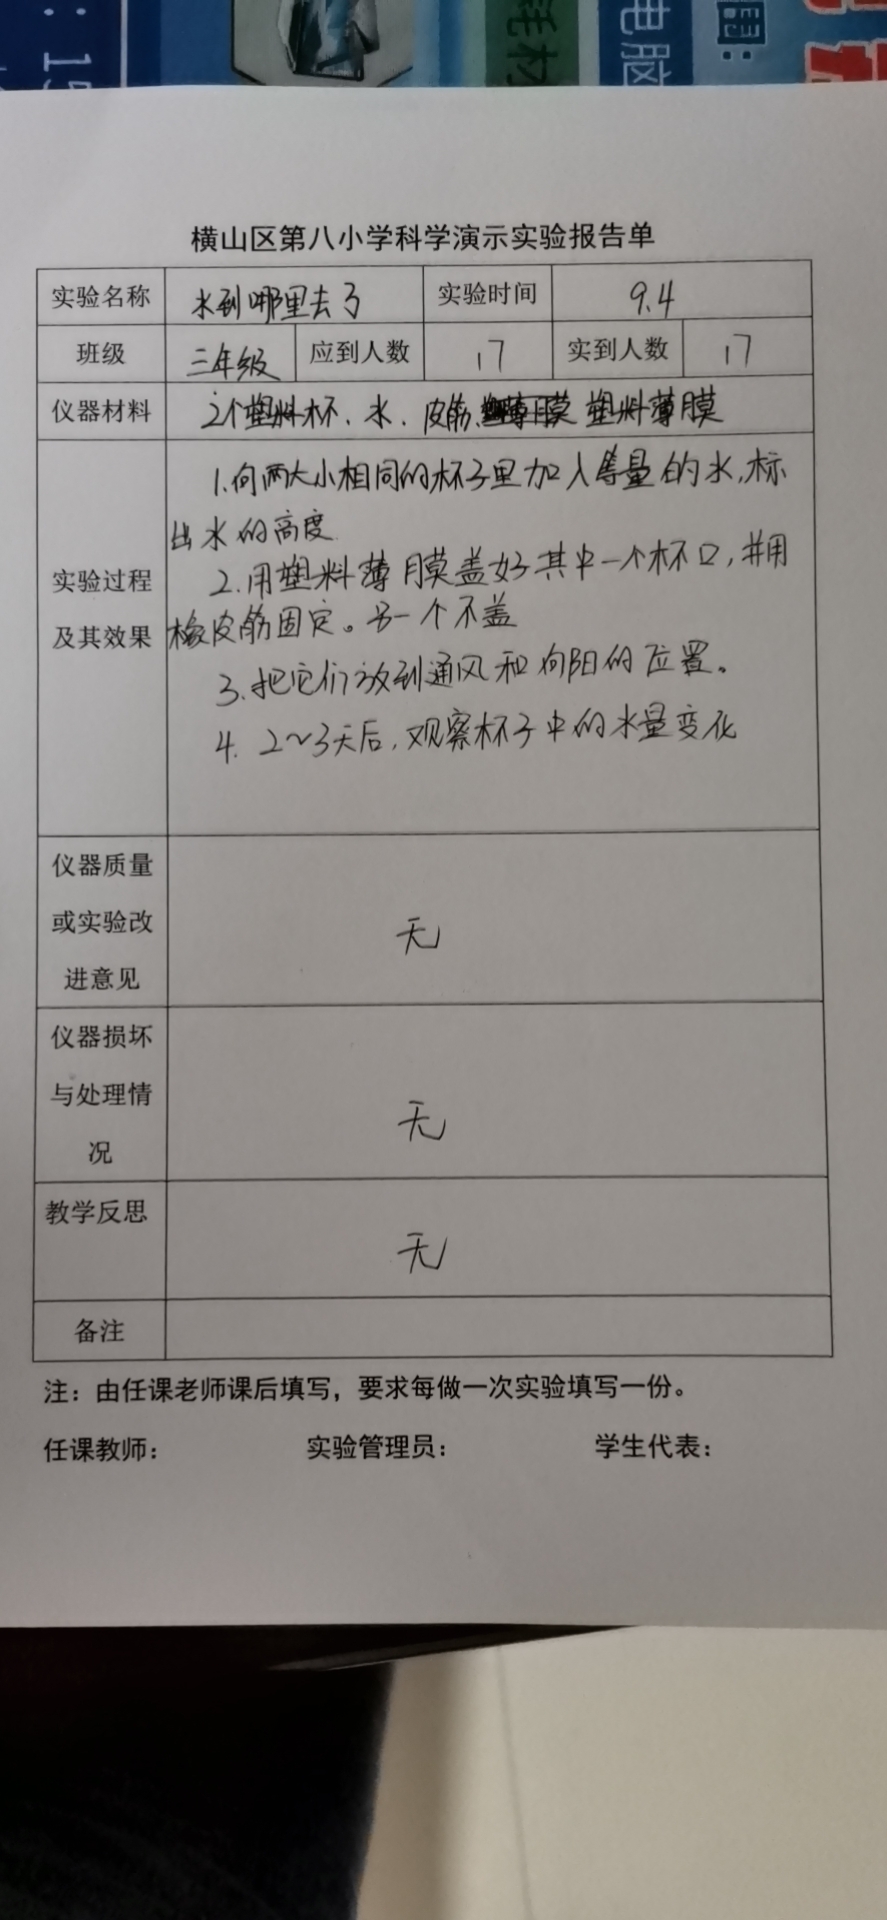 耗材
电脑
横山区第八小学科学演示实验报告单
实验名称 水到哪里去了 实验时间 9.4
班级 三年级 应到人数 17 实到人数 17
仪器材料 2个塑料杯、水、皮筋、塑料薄膜
1.向两大小相同的杯子里加入等量的水,标
出水的高度
2.用塑料薄膜盖好其中一个杯口,并用
实验过程
橡皮筋固定。另一个不盖
及其效果
3.把它们放到通风和向阳的位置。
4. 2~3天后,观察杯子中的水量变化
仪器质量
或实验改
进意见
无
仪器损坏
与处理情
况
无
教学反思
无
备注
注：由任课老师课后填写，要求每做一次实验填写一份。
任课教师： 实验管理员： 学生代表：